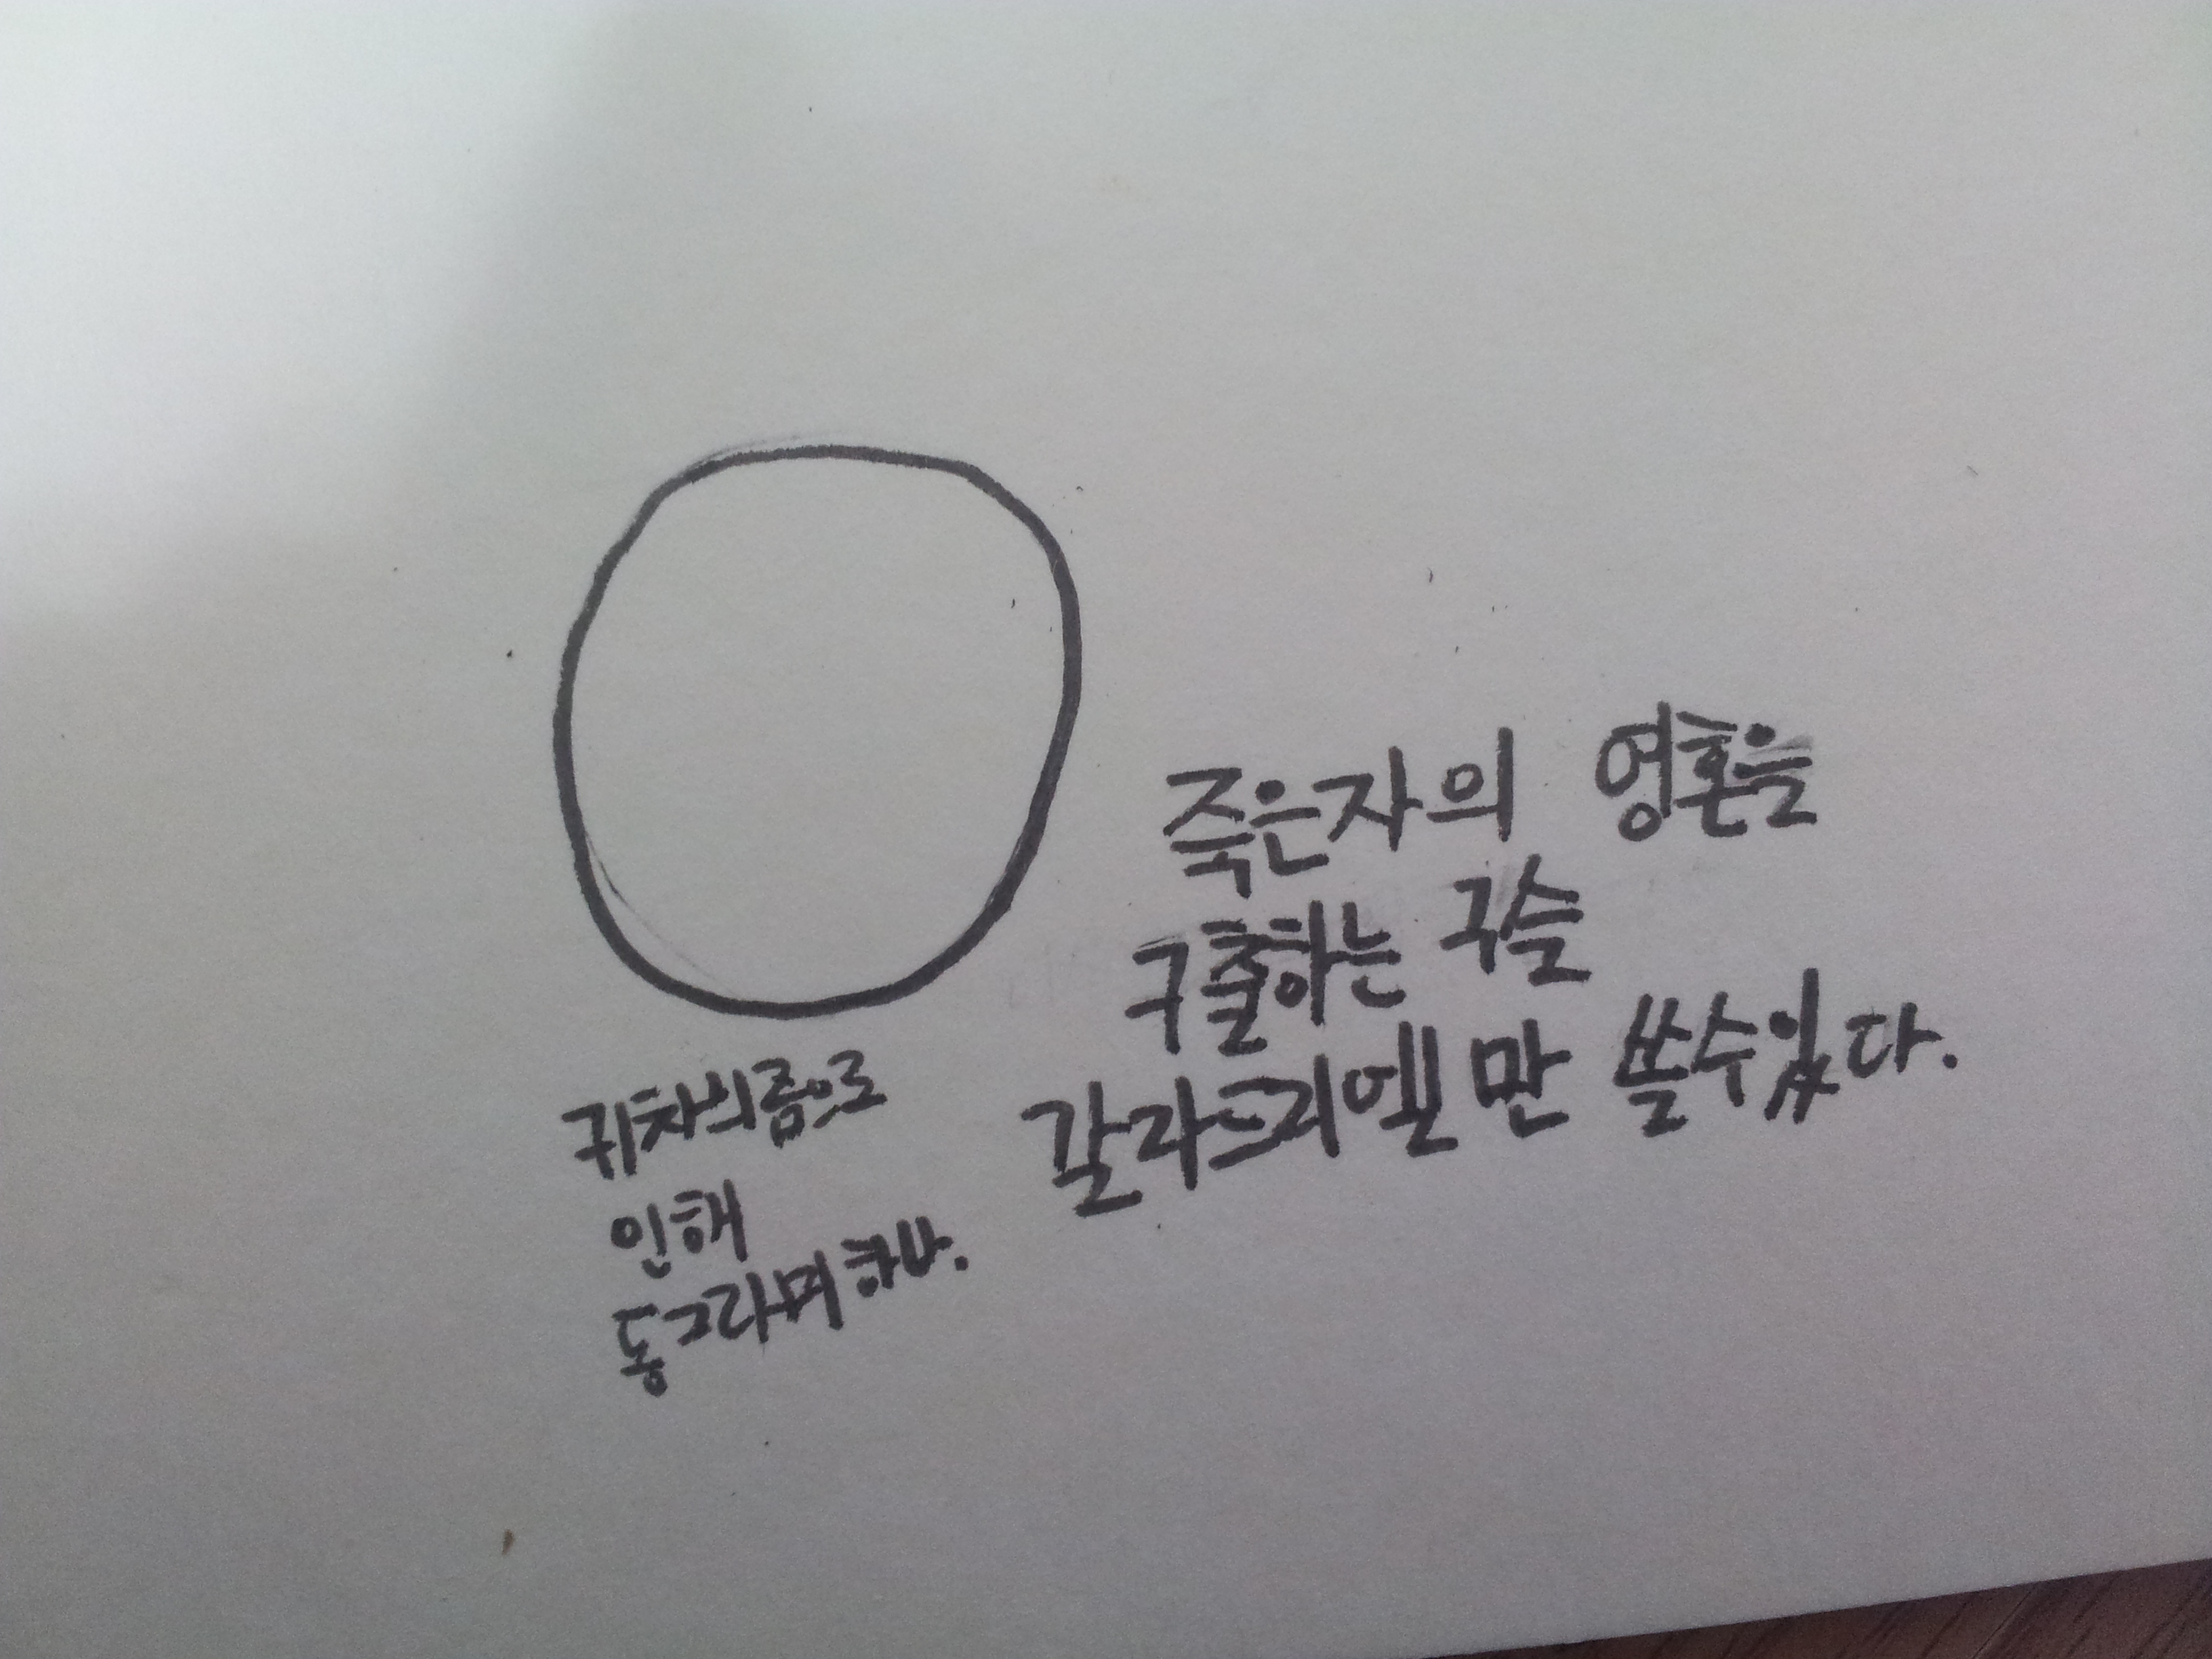 죽은자의 영혼을
구출하는 구슬
갈라드리엘만 쓸수있다.
귀차늬즘으로
인해
동그라미하나.